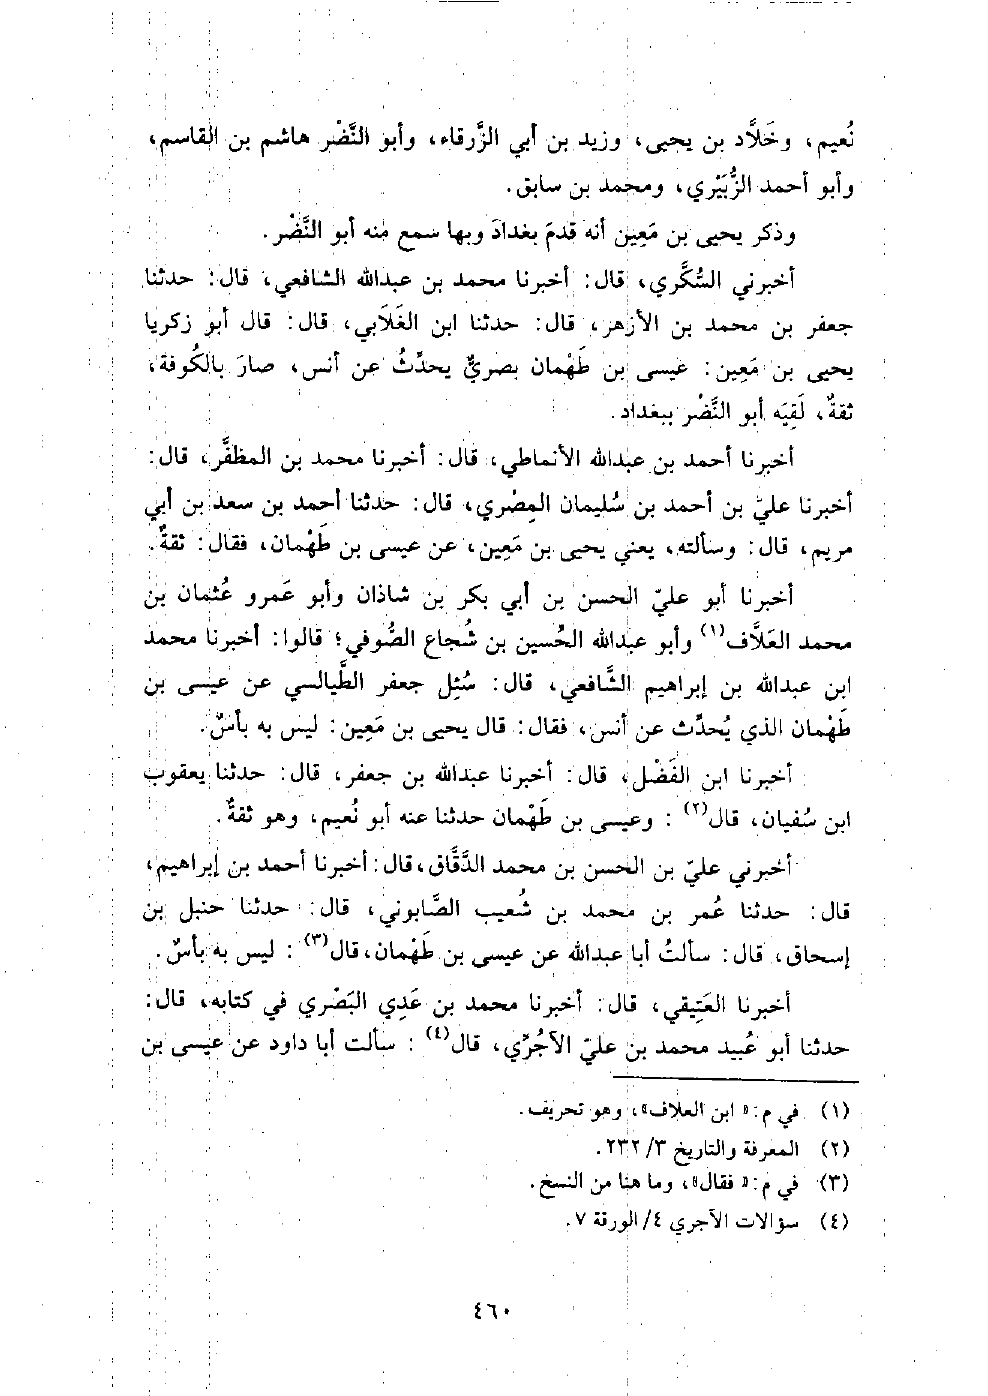 نُعيم، وخَلَّاد بن يحيى، وزيد بن أبي الزَّرقاء، وأبو النَّضْر هاشم بن القاسم،
وأبو أحمد الزُّبَيْري، ومحمد بن سابق.
وذكر يحيى بن مَعِين أنه قدمَ بغدادَ وبها سمع منه أبو النَّضْر.
أخبرني السُّكَّري، قال: أخبرنا محمد بن عبدالله الشافعي، قال: حدثنا
جعفر بن محمد بن الأزهر، قال: حدثنا ابن الغَلَابي، قال: قال أبو زكريا
يحيى بن مَعِين: عيسى بن طَهْمان بصريٌّ يحدِّثُ عن أنس، صارَ بالكُوفة،
ثقةٌ، لَقِيَه أبو النَّضْر ببغداد.
أخبرنا أحمد بن عبدالله الأنماطي، قال: أخبرنا محمد بن المظفَّر، قال:
أخبرنا عليّ بن أحمد بن سُليمان المِصْري، قال: حدثنا أحمد بن سعد بن أبي
مريم، قال: وسألته، يعني يحيى بن مَعِين، عن عيسى بن طَهْمان، فقال: ثقةٌ.
أخبرنا أبو عليّ الحسن بن أبي بكر بن شاذان وأبو عَمرو عُثمان بن
محمد العَلَّاف(١) وأبو عبدالله الحُسين بن شُجاع الصُّوفي؛ قالوا: أخبرنا محمد
ابن عبدالله بن إبراهيم الشَّافعي، قال: سُئِل جعفر الطَّيالسي عن عيسى بن
طَهْمان الذي يُحدِّث عن أنس، فقال: قال يحيى بن مَعِين: ليس به بأسٌ.
أخبرنا ابن الفَضْل، قال: أخبرنا عبدالله بن جعفر، قال: حدثنا يعقوب
ابن سُفيان، قال(٢): وعيسى بن طَهْمان حدثنا عنه أبو نُعيم، وهو ثقةٌ.
أخبرني عليّ بن الحسن بن محمد الدَّقَّاق، قال: أخبرنا أحمد بن إبراهيم،
قال: حدثنا عُمر بن محمد بن شُعيب الصَّابوني، قال: حدثنا حنبل بن
إسحاق، قال: سألتُ أبا عبدالله عن عيسى بن طَهْمان، قال(٣): ليس به بأسٌ.
أخبرنا العَتِيقي، قال: أخبرنا محمد بن عَدِي البَصْري في كتابه، قال:
حدثنا أبو عُبيد محمد بن عليّ الآجُرِّي، قال(٤): سألت أبا داود عن عيسى بن
(١) في م: «ابن العلاف»، وهو تحريف.
(٢) المعرفة والتاريخ ٣/ ٢٣٢.
(٣) في م: «فقال»، وما هنا من النسخ.
(٤) سؤالات الآجري ٤/ الورقة ٧.
٤٦٠